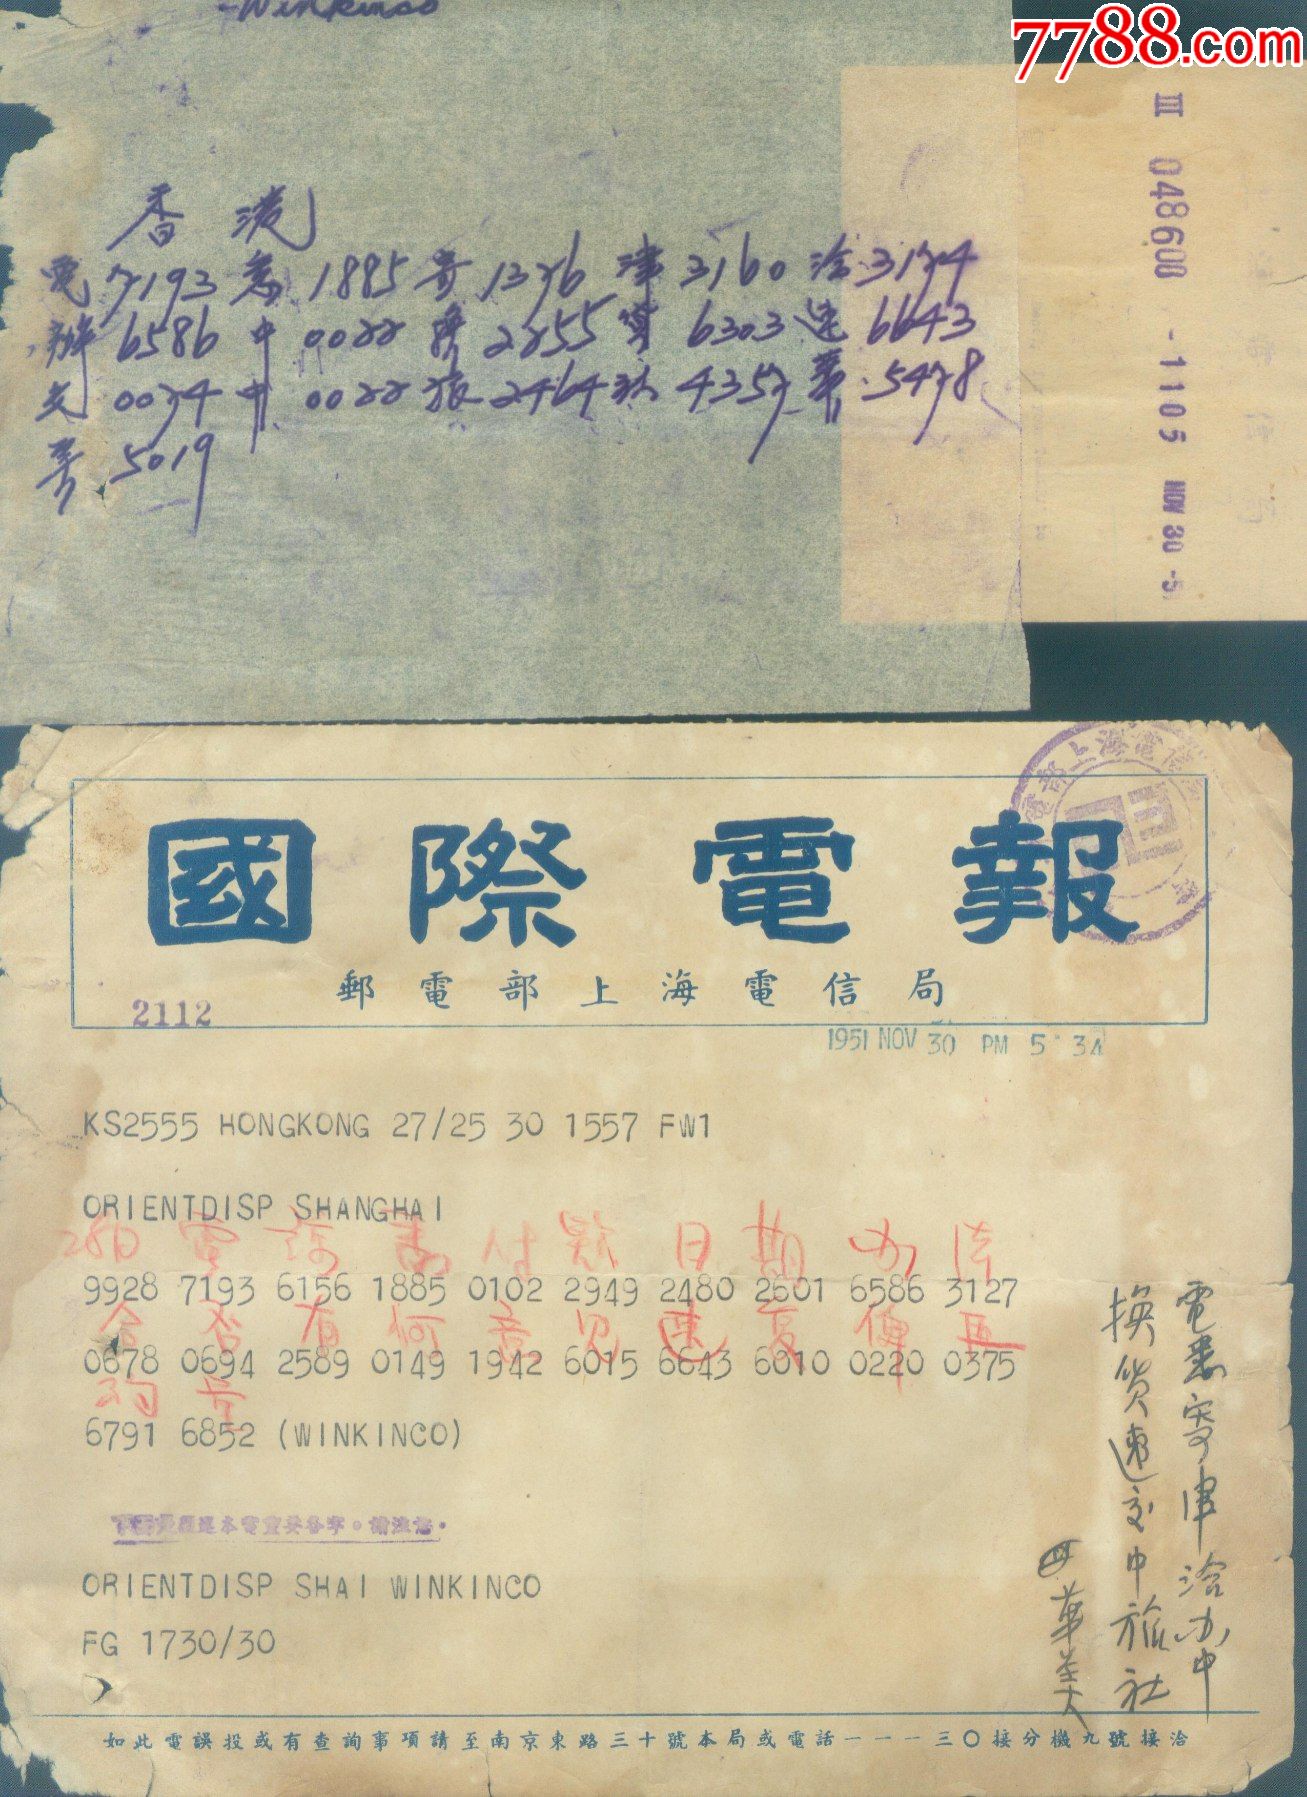 7788.com
-Winkinco
III 048608 -1105 NOV 30 -5
香港
電 7193 悉 1885 寄 1376 津 3160 洽 3174
辦 6586 中 0022 換 2255 貨 6303 速 6643
交 0074 中 0022 旅 2464 社 4357 華 5478
美 5019
國際電報
郵電部上海電信局
2112
1951 NOV 30 PM 5 34
KS2555 HONGKONG 27/25 30 1557 FW1
ORIENTDISP SHANGHAI
28日 電 請 悉 付 款 日 期 办 法
9928 7193 6156 1885 0102 2949 2480 2601 6586 3127
合 否 有 何 意 见 速 复 俾 再
0678 0694 2589 0149 1942 6015 6643 6010 0220 0375
6791 6852 (WINKINCO)
本電重要各字。請注意。
ORIENTDISP SHAI WINKINCO
FG 1730/30
電悉寄津洽办中
換貨速交中旅社
華美
如此電誤投或有查詢事項請至南京東路三十號本局或電話一一一三〇接分機九號接洽